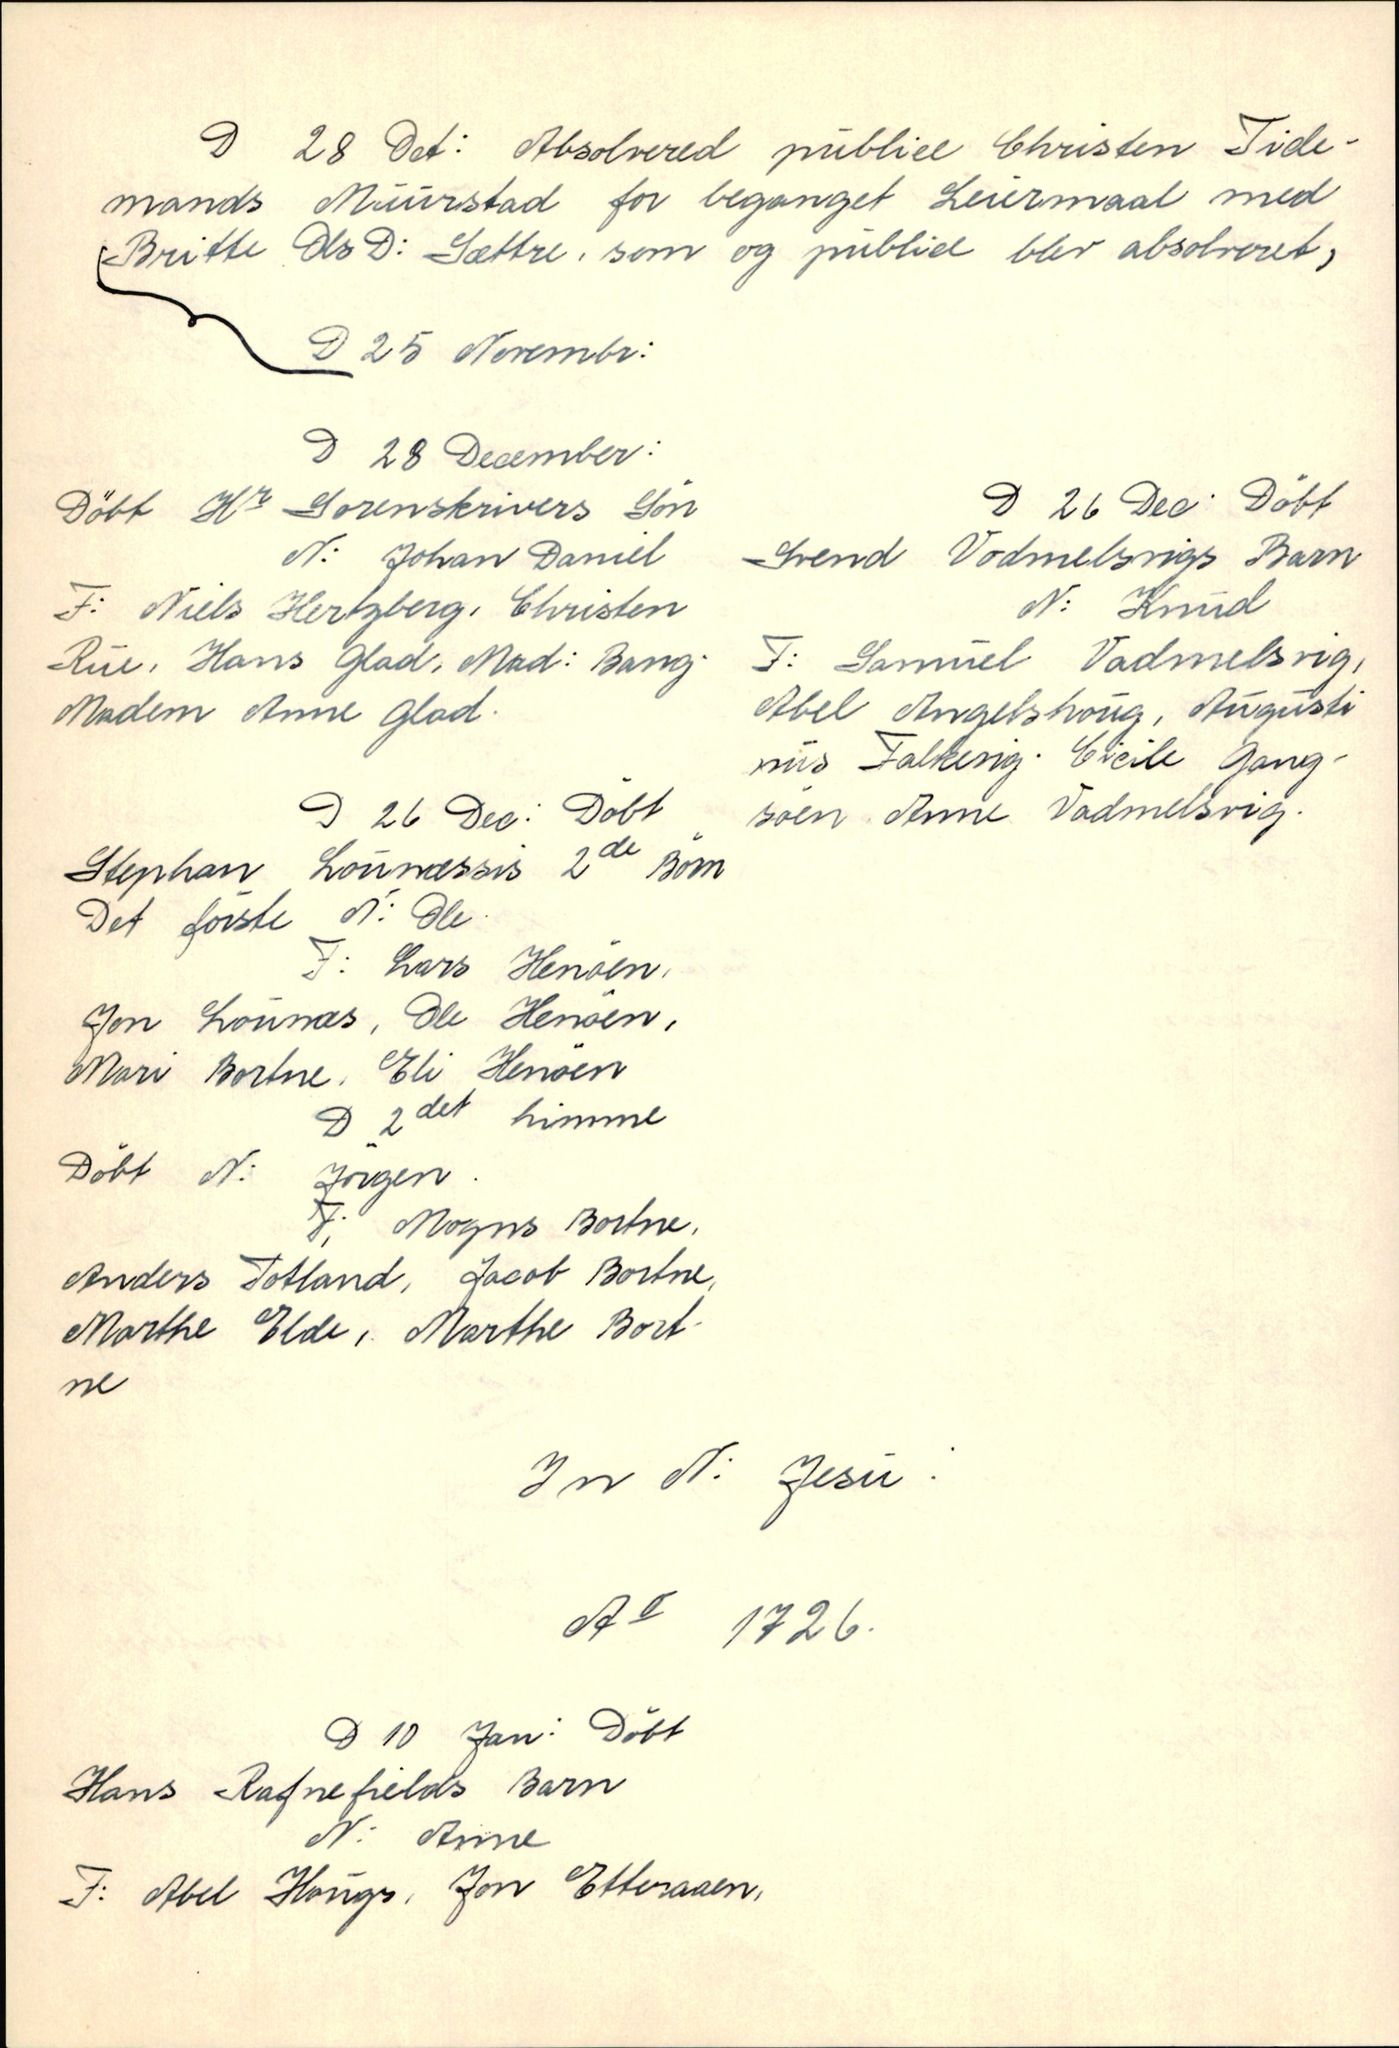 D 28 Det: Absolvered publice Christen Tide-
mands Muurstad for beganget Leiermaal med
Britte OlsD: Sættre, som og publice blev absolveret,
D 25 Novembr:
D 28 December:
Döbt Hr Sorenskrivers Sön
N: Johan Daniel
F: Niels Hertzberg, Christen
Rue, Hans Glad, Mad: Bang.
Madem Anne Glad.
D 26 Dec: Döbt
Stephan Lounæssis 2de Börn
Det förste N: Ole
F: Lars Henöen,
Jon Lounæs, Ole Henöen,
Mari Bortne, Eli Henöen
D 2det himme
Döbt N: Jörgen.
F; Mogns Bortne,
Anders Totland, Jacob Bortne,
Marthe Elde, Marthe Bort-
ne
D 26 Dec: Döbt
Svend Vodmelsvigs Barn
N: Knud
F: Samuel Vadmelsvig,
Abel Angelshoug, Augusti
nus Falkevig. Cicile Gang-
söen Anne Vadmelsvig.
In N: Jesu:
Ao 1726.
D 10 Jan: Döbt
Hans Rafnefields Barn
N: Anne
F: Abel Hougs, Jon Etteraaen,